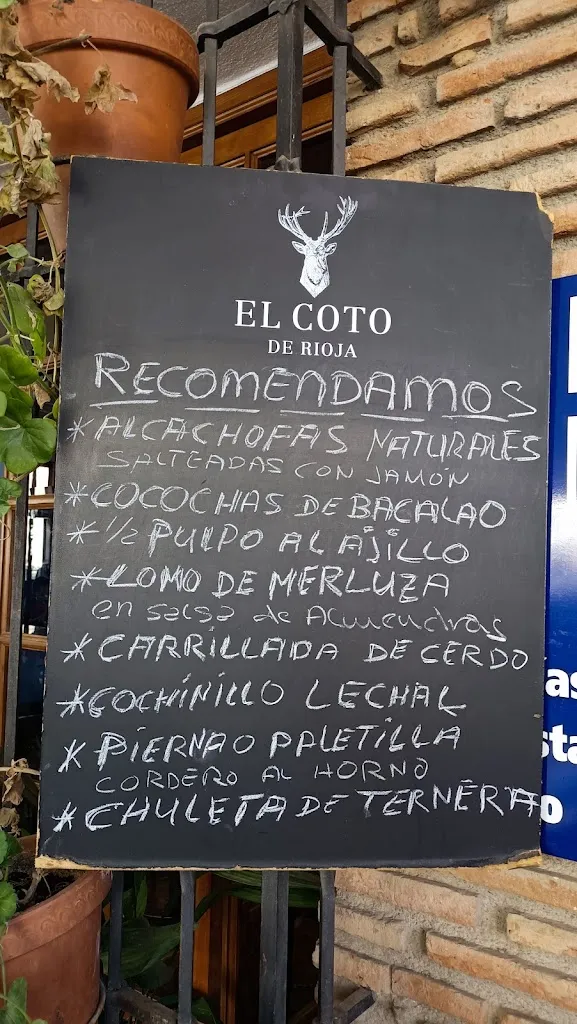 EL COTO
DE RIOJA
RECOMENDAMOS
* ALCACHOFAS NATURALES
SALTEADAS CON JAMÓN
* COCOCHAS DE BACALAO
* 1/2 PULPO AL AJILLO
* LOMO DE MERLUZA
en salsa de Almendras
* CARRILLADA DE CERDO
* COCHINILLO LECHAL
* PIERNA O PALETILLA
CORDERO AL HORNO
* CHULETA DE TERNERA